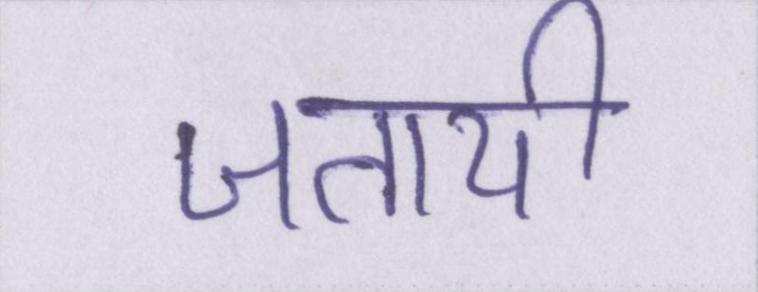 जतायी